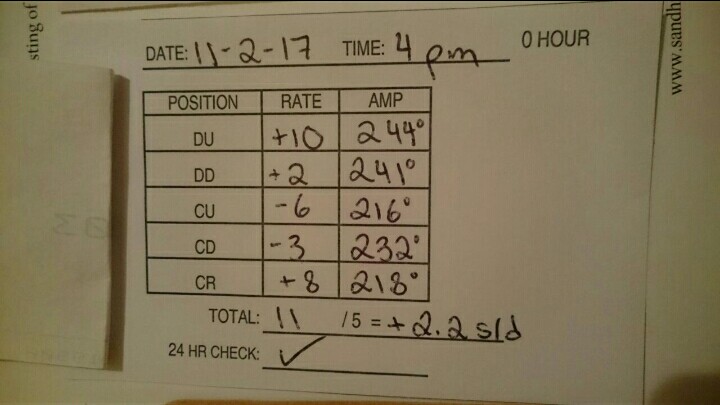 sting of
DATE: 11-2-17 TIME: 4 pm 0 HOUR
www.sandh
POSITION RATE AMP
DU +10 244°
DD +2 241°
CU -6 216°
CD -3 232°
CR +8 218°
TOTAL: 11 /5 = +2.2 s/d
24 HR CHECK: ✓